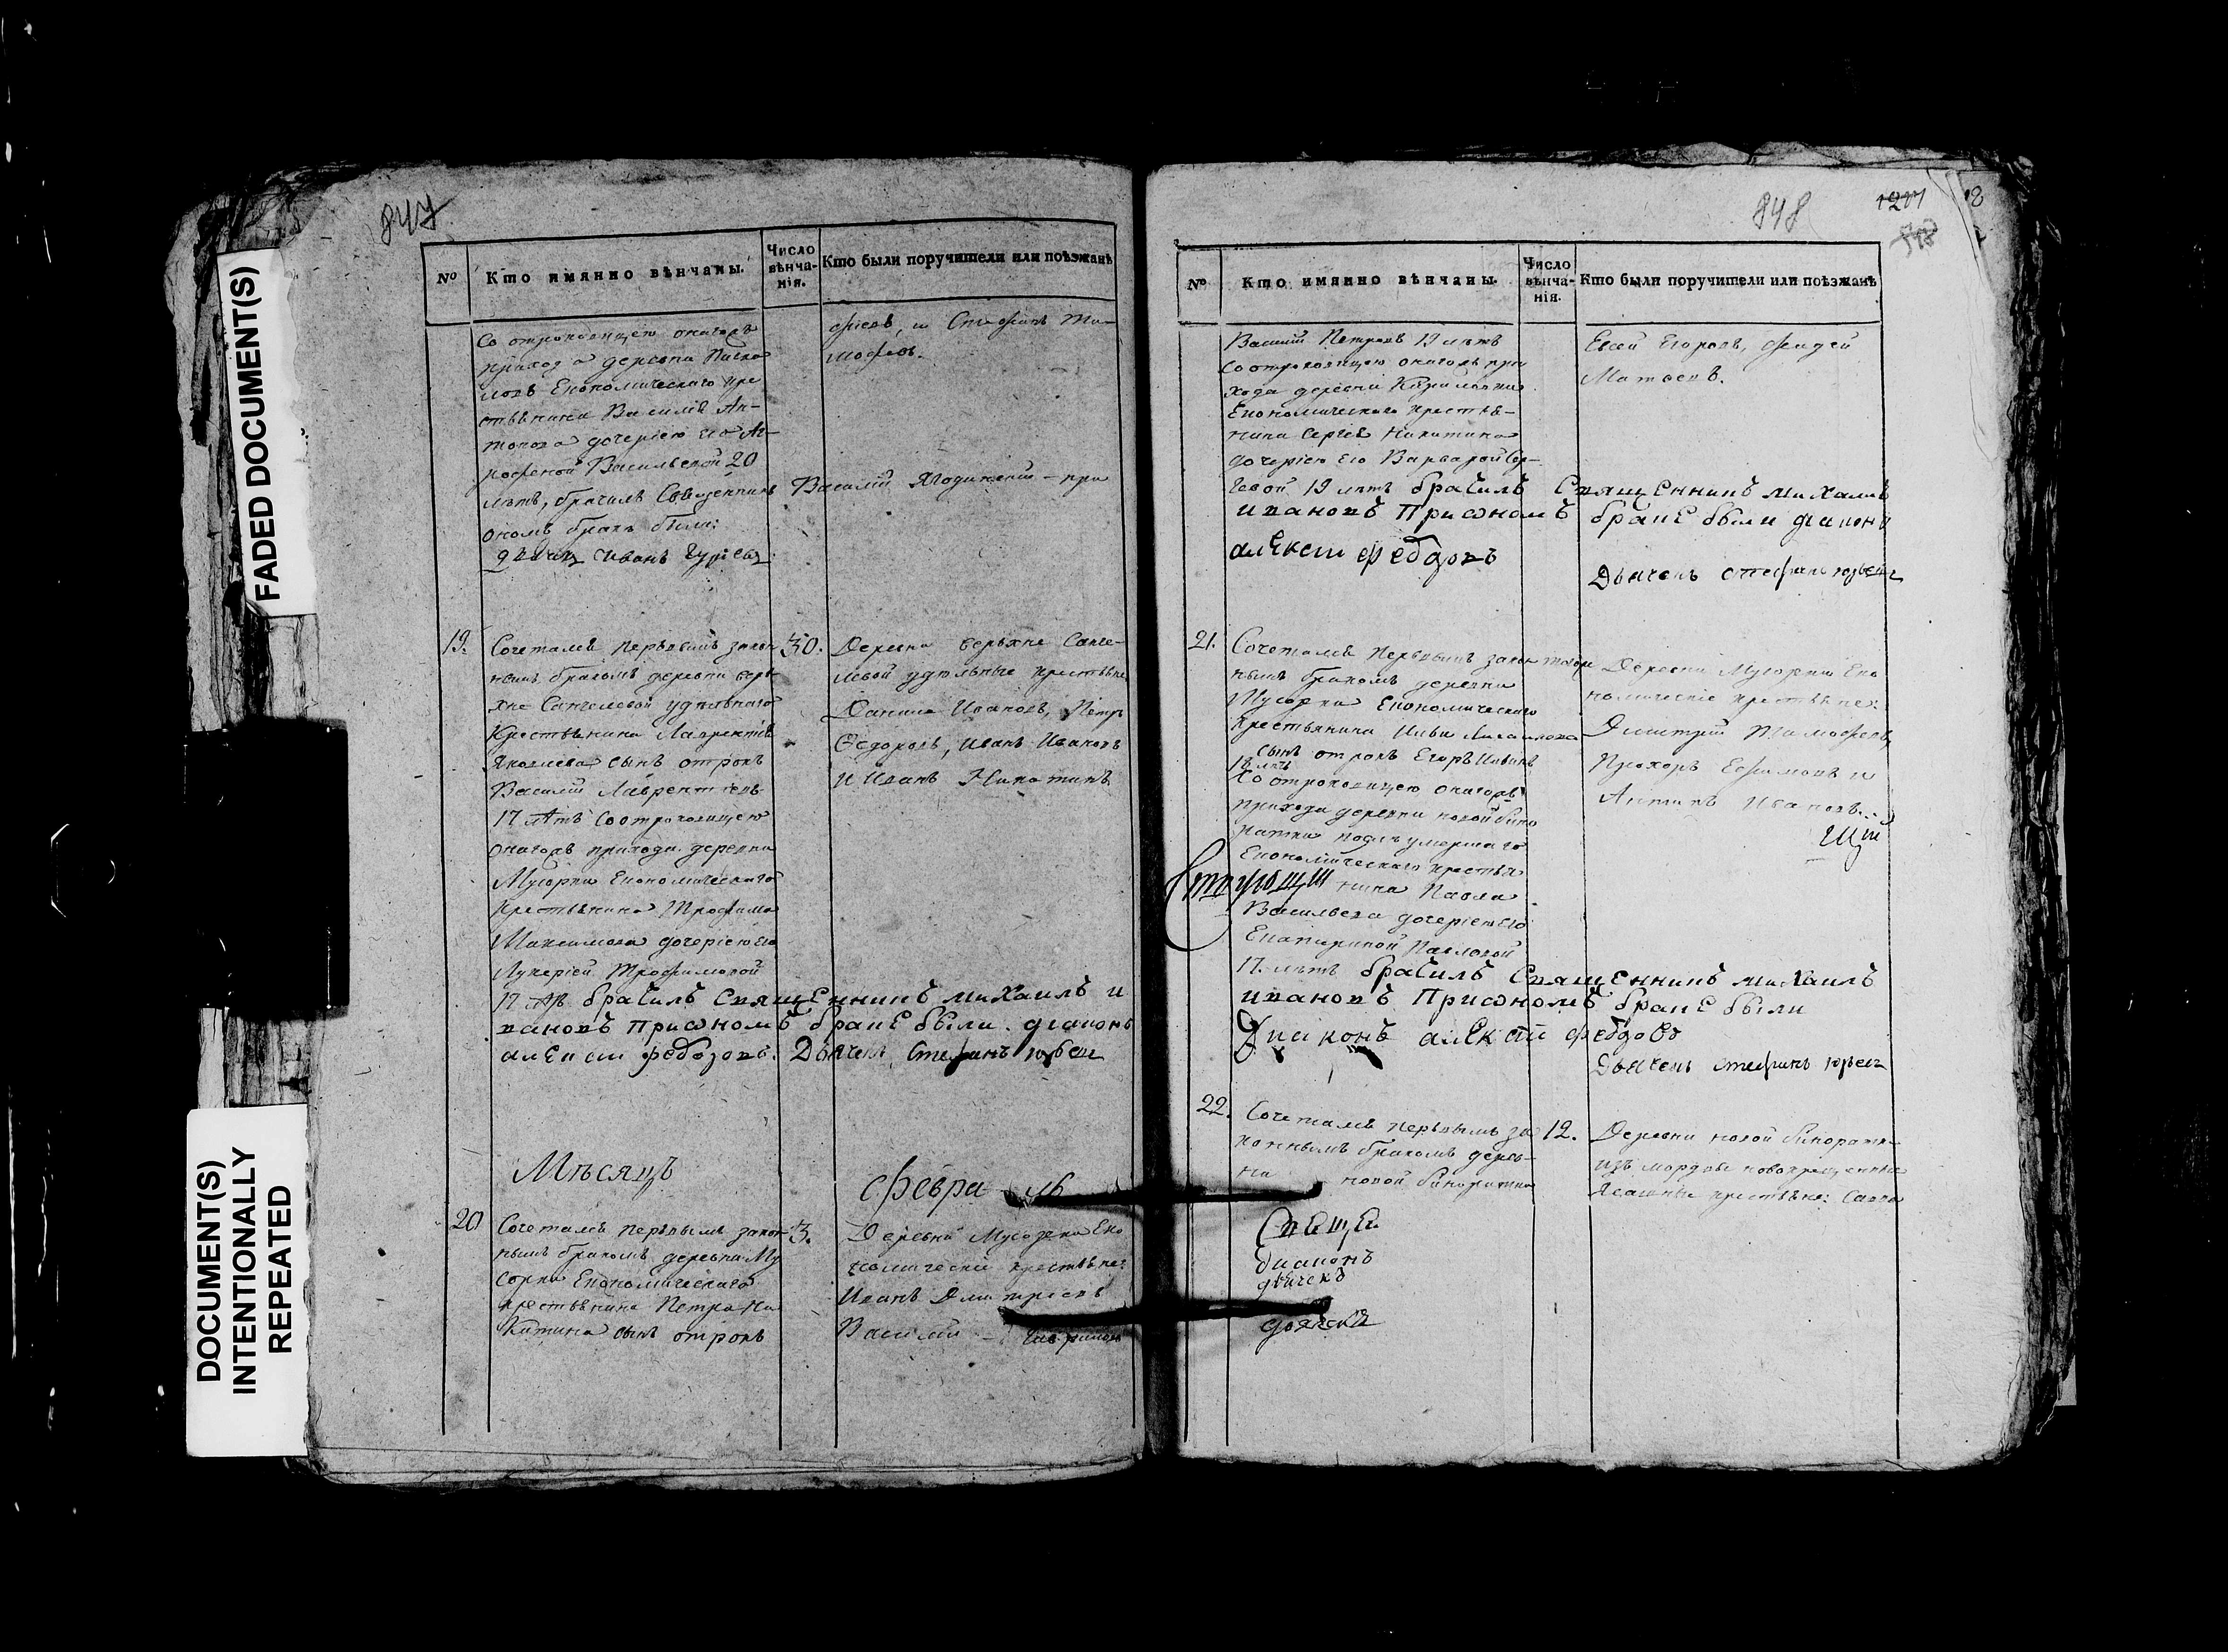 FADED DOCUMENT(S)
DOCUMENT(S)
INTENTIONALLY
REPEATED
847
№
Кто имянно вѣнчаны.
Число
вѣнча-
нія.
Кто были поручители или поѣзжанѣ
Со отроковицею онагожъ
приход а деревни
Економическаго кре
стьѣнина Василіѣ Ан-
тонова дочеріею его Аг
рофеной Васильевой 20
лѣтъ, брачилъ Священникъ
Василій Ягодинской - при
ономъ бракѣ были:
дьячец Иванъ Гурьевъ
фіевъ, и Стефанъ Ти-
мофѣевъ.
19.
Сочеталсѣ первымъ закон
нымъ бракомъ деревни верь
хне Санчелевой удѣльнаго
Крестьѣнина Лаврентіѣ
Яковлева сынъ отрокъ
Василій Лаврентіевъ
17 лѣтъ Со отроковицею
онагожъ прихода деревни
Мусорки Економическаго
Крестьѣнина Трофима
Максимова дочеріею Его
Лукеріей Трофимовой
17 лѣ брачилъ Священникъ михаилъ и
вановъ При ономъ бракЕ были діаконъ
алеЕксѣи феодоровъ. Дьячекъ Стефанъ юрьев
30.
Деревни верьхне Санче-
левой удѣльные крестьѣне
Данила Ивановъ, Петръ
Ѳедоровъ, Иванъ Ивановъ
и Иванъ Никитинъ
Мѣсяцъ
февра ль
20
Сочеталсѣ первымъ закон
нымъ бракомъ деревни Му
сорки Економическаго
крестьѣнина Петра Ни
Китина сынъ отрокъ
3.
Деревни Мусорки Еко
номическіе крестьѣне:
Иванъ Дмитріевъ
Василій Гавриловъ
848
1217
18
№
Кто имянно вѣнчаны.
Число
вѣнча-
нія.
Кто были поручители или поѣзжанѣ
Василій Петровъ 19 лѣтъ
со отроковицею онагожъ при
хода деревни Кириловки
Економическаго крестьѣ-
нина Сергіѣ Никитина
дочеріею Его Варварой Сер-
геевой 19 лѣтъ брачилъ Священникъ михаилъ
ивановъ При ономъ бракЕ были діаконъ
алЕксѣи феодоровъ
Дьячекъ стефанъ юрьевъ
Евсей Егоровъ,
Матвеевъ.
21.
Сочеталсѣ первымъ закон
нымъ бракомъ деревни
Мусорки Економическаго
крестьянина Ильи
сынъ отрокъ Егоръ Ильинъ
18 лѣтъ
Со отроковицею онагожъ
прихода деревни новой бина
ратки послѣ умершаго
Економическаго крестья
нина Павла
Васильева дочеріею Его
Екатериной Павловой
17. лѣтъ брачилъ Священникъ михаилъ
ивановъ При ономъ бракЕ были
Диаконъ алЕксѣи феодоров
Дьячекъ стефанъ юрьев
тогож
Деревни Мусорки Еко
номическіе крестьѣне:
Дмитрій Тимофѣевъ,
Прохоръ Ефимовъ и
Антипъ Ивановъ.
22.
Сочеталсѣ первымъ за
коннымъ бракомъ дерев-
ни новой бинаратки
12.
Деревни новой бинаратки
изъ мордвы новокрещенные
Ясашные крестьѣне: Савва
СвЕщЕн
диаконъ
дьячекъ